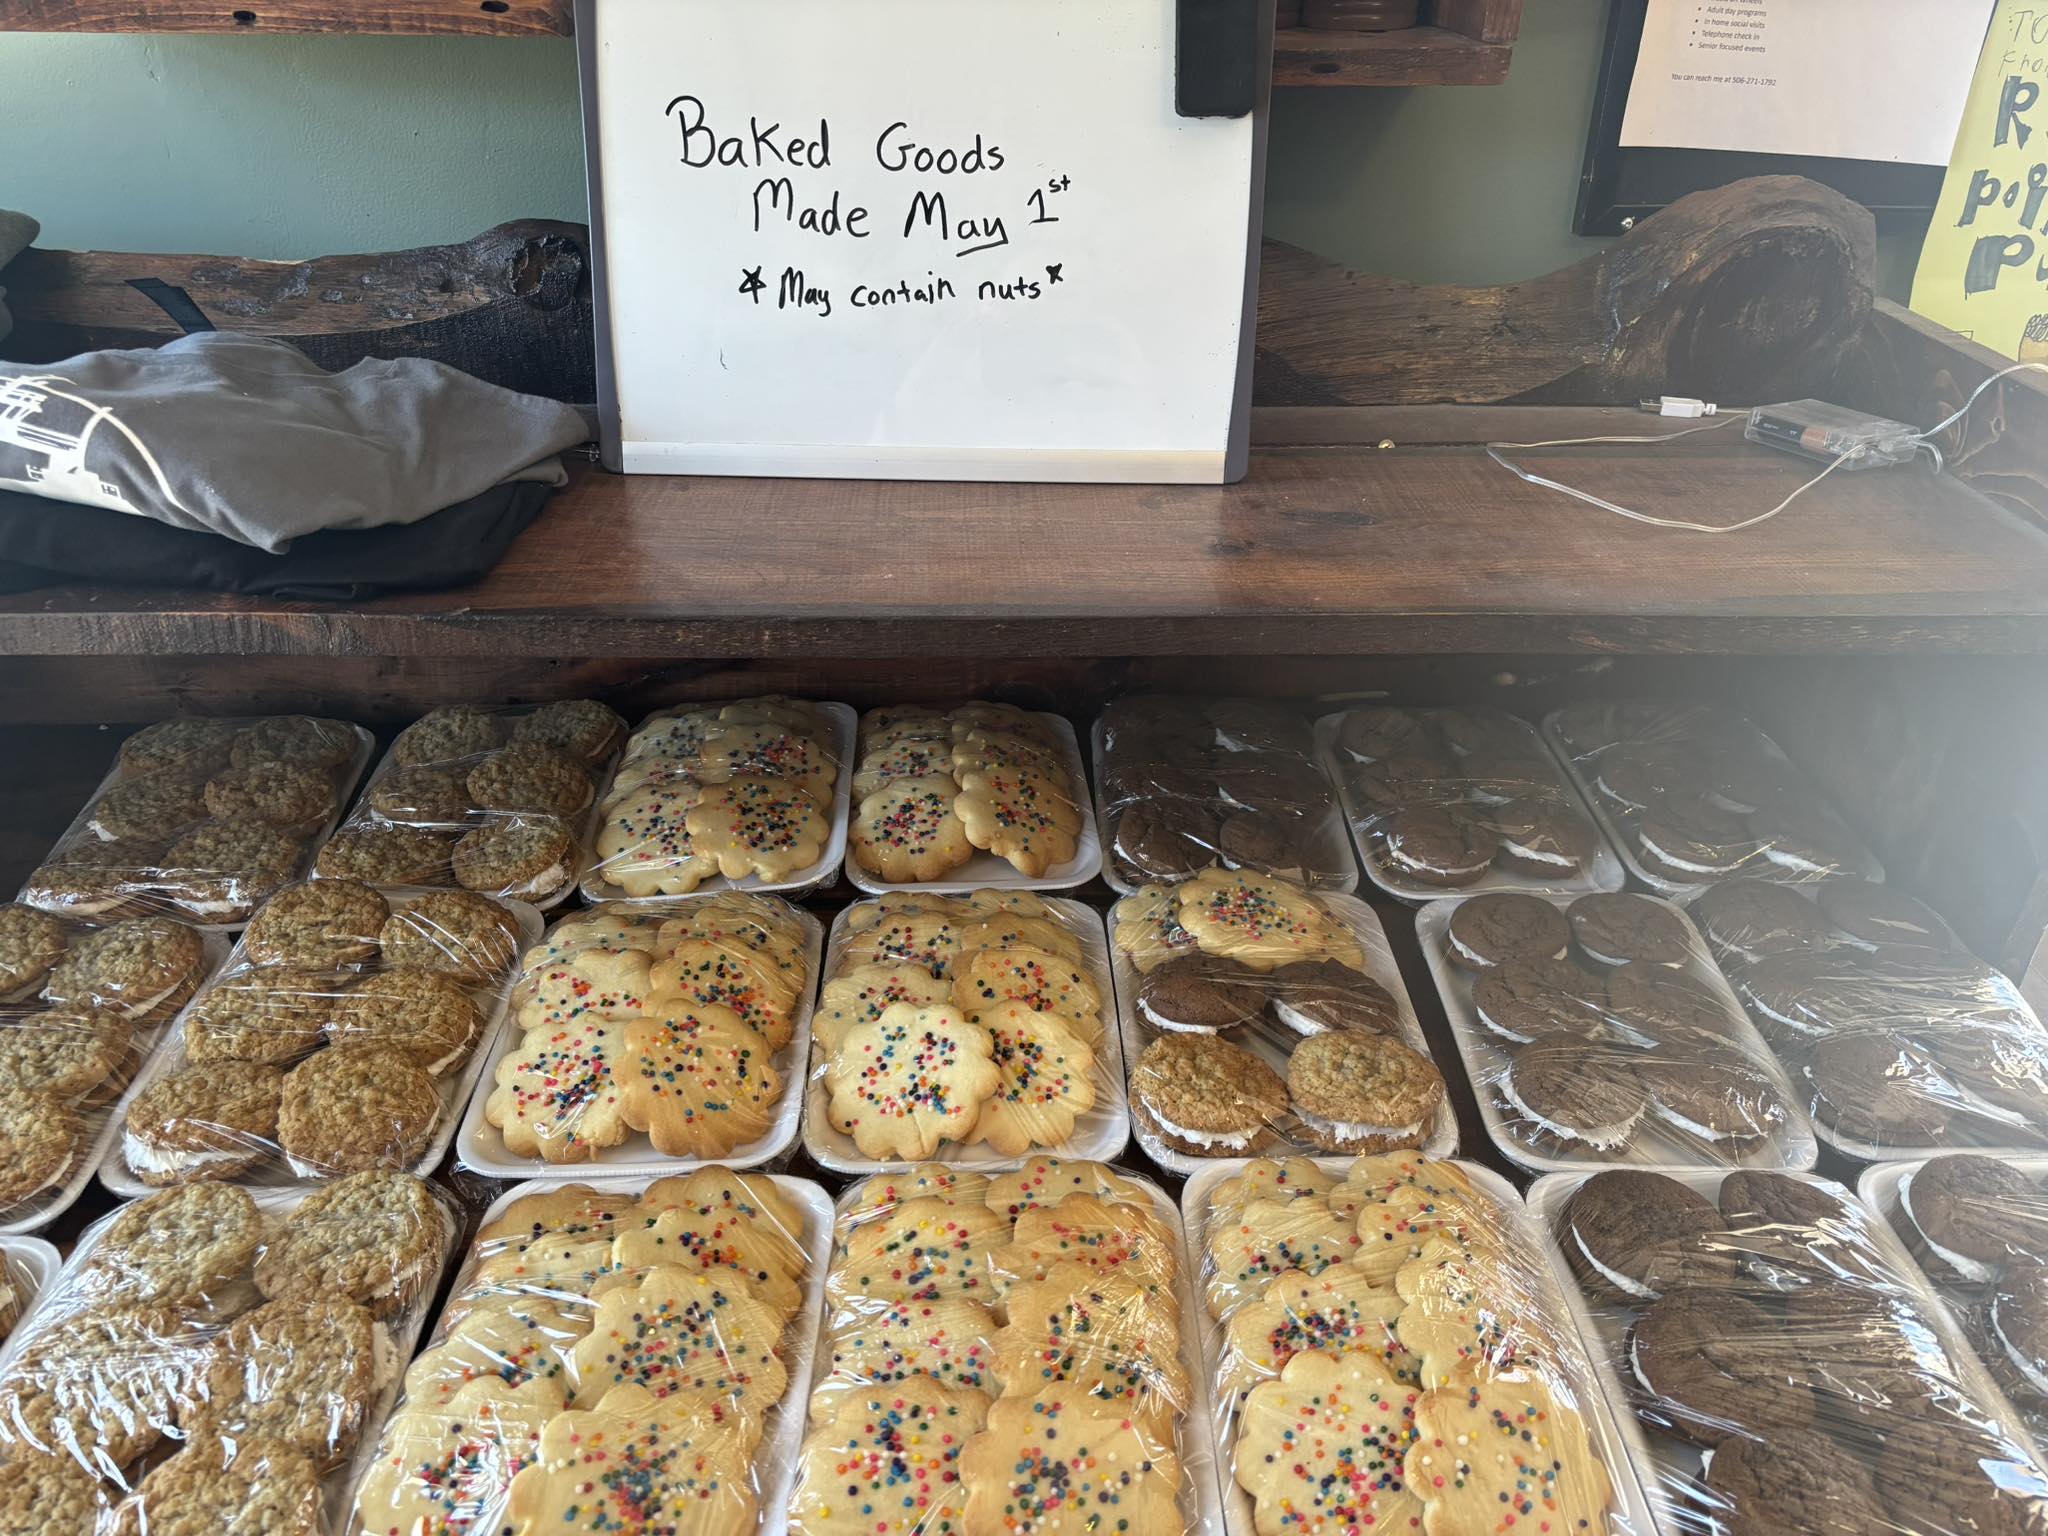 Baked Goods
Made May 1st
*May contain nuts*
Adult day programs
In home social visits
Telephone check in
Senior focused events
You can reach me at 506-271-1792